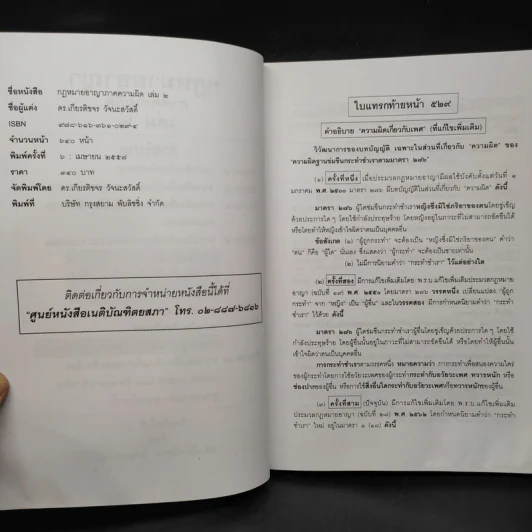 ชื่อหนังสือ กฎหมายอาญาภาคความผิด เล่ม ๒
ชื่อผู้แต่ง ดร.เกียรติขจร วัจนะสวัสดิ์
ISBN ๙๗๘-๖๑๖-๓๖๑-๐๒๙-๔
จำนวนหน้า ๖๔๐ หน้า
พิมพ์ครั้งที่ ๖ : เมษายน ๒๕๕๘
ราคา ๓๔๐ บาท
จัดพิมพ์โดย ดร.เกียรติขจร วัจนะสวัสดิ์
พิมพ์ที่ บริษัท กรุงสยาม พับลิชชิ่ง จำกัด
ติดต่อเกี่ยวกับการจำหน่ายหนังสือนี้ได้ที่
"ศูนย์หนังสือเนติบัณฑิตยสภา" โทร. ๐๒-๘๘๗-๖๘๐๖
ใบแทรกท้ายหน้า ๕๒๙
คำอธิบาย "ความผิดเกี่ยวกับเพศ" (ที่แก้ไขเพิ่มเติม)
วิวัฒนาการของบทบัญญัติ เฉพาะในส่วนที่เกี่ยวกับ "ความผิด" ของ
"ความผิดฐานข่มขืนกระทำชำเราตามมาตรา ๒๗๖"
(๑) ครั้งที่หนึ่ง เมื่อประมวลกฎหมายอาญามีผลใช้บังคับตั้งแต่วันที่ ๑
มกราคม พ.ศ. ๒๕๐๐ มาตรา ๒๗๖ มีบทบัญญัติในส่วนที่เกี่ยวกับ "ความผิด" ดังนี้
มาตรา ๒๗๖ ผู้ใดข่มขืนกระทำชำเราหญิงซึ่งมิใช่ภริยาของตนโดยขู่เข็ญ
ด้วยประการใด ๆ โดยใช้กำลังประทุษร้าย โดยหญิงอยู่ในภาวะที่ไม่สามารถขัดขืนได้
หรือโดยทำให้หญิงเข้าใจผิดว่าตนเป็นบุคคลอื่น
ข้อสังเกต (๑) "ผู้ถูกกระทำ" จะต้องเป็น "หญิงซึ่งมิใช่ภริยาของตน" คำว่า
"ตน" ก็คือ "ผู้ใด" นั่นเอง ซึ่งแสดงว่า "ผู้กระทำ" จะต้องเป็นชายเท่านั้น
(๒) ไม่มีการนิยามคำว่า "กระทำชำเรา" ไว้แต่อย่างใด
(๒) ครั้งที่สอง มีการแก้ไขเพิ่มเติมโดย พ.ร.บ.แก้ไขเพิ่มเติมประมวลกฎหมาย
อาญา (ฉบับที่ ๑๙) พ.ศ. ๒๕๕๐ โดยมาตรา ๒๗๖ วรรคหนึ่ง เปลี่ยนแปลง "ผู้ถูก
กระทำ" จาก "หญิง" เป็น "ผู้อื่น" และในวรรคสอง มีการกำหนดนิยามคำว่า "กระทำ
ชำเรา" ไว้ด้วย ดังนี้
มาตรา ๒๗๖ ผู้ใดข่มขืนกระทำชำเราผู้อื่นโดยขู่เข็ญด้วยประการใด ๆ โดยใช้
กำลังประทุษร้าย โดยผู้อื่นนั้นอยู่ในภาวะที่ไม่สามารถขัดขืนได้ หรือโดยทำให้ผู้อื่นนั้น
เข้าใจผิดว่าตนเป็นบุคคลอื่น
การกระทำชำเราตามวรรคหนึ่ง หมายความว่า การกระทำเพื่อสนองความใคร่
ของผู้กระทำโดยการใช้อวัยวะเพศของผู้กระทำกระทำกับอวัยวะเพศ ทวารหนัก หรือ
ช่องปากของผู้อื่น หรือการใช้สิ่งอื่นใดกระทำกับอวัยวะเพศหรือทวารหนักของผู้อื่น
(๓) ครั้งที่สาม (ปัจจุบัน) มีการแก้ไขเพิ่มเติมโดย พ.ร.บ.แก้ไขเพิ่มเติม
ประมวลกฎหมายอาญา (ฉบับที่ ๒๗) พ.ศ. ๒๕๖๒ โดยกำหนดนิยามคำว่า "กระทำ
ชำเรา" ใหม่ อยู่ในมาตรา ๑ (๑๘) ดังนี้